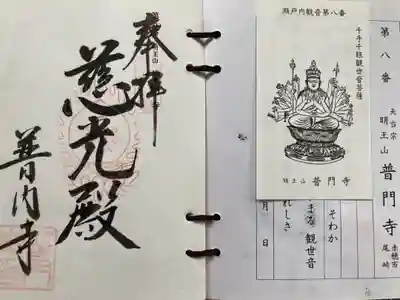 第八番
天台宗
明王山
普門寺
赤穂市
尾崎
そわか
まる 観世音
れしき
月 日
瀬戸内観音第八番
千手千眼観世音菩薩
明王山 普門寺
奉拝
慈光殿
普門寺